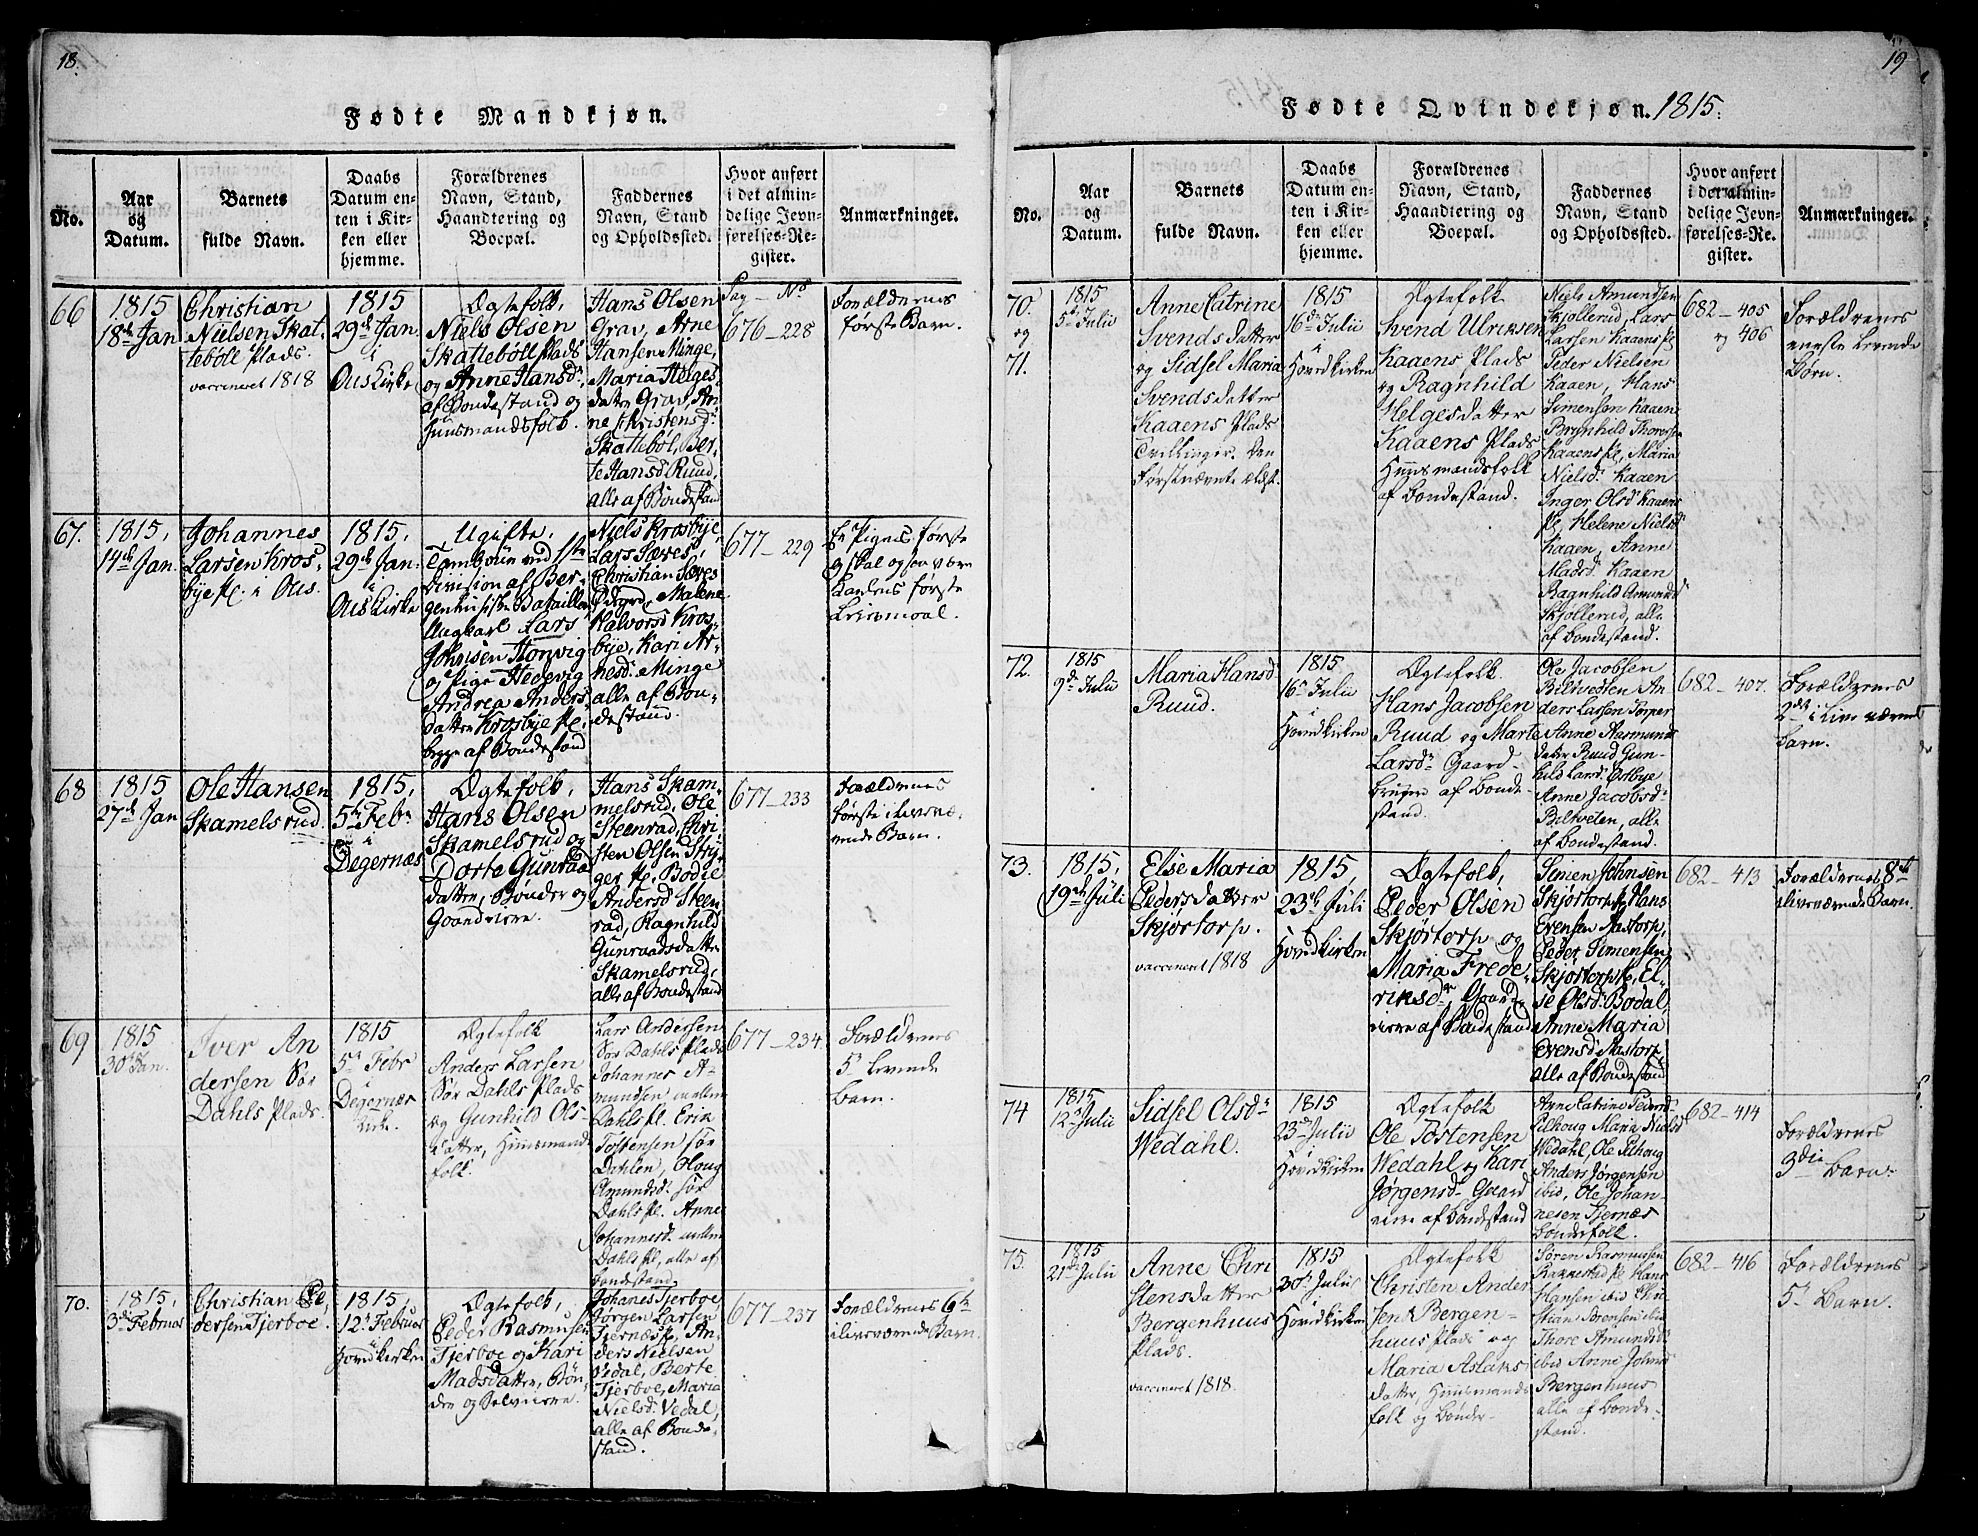 18.
Fødte Mandkjøn.
No.
Aar
og
Datum.
Barnets
fulde Navn.
Daabs
Datum en-
ten i Kir-
ken eller
hjemme.
Forældrenes
Navn, Stand,
Haandtering og
Boepæl.
Faddernes
Navn, Stand
og Opholdssted.
Hvor anført
i det almin-
delige Jevn-
førelses-Re-
gister.
Anmærkninger.
66
1815
18de Jan
Christian
Nielsen Skat-
tebøll Plads.
vaccineret 1818
1815
29de Jan.
i
Ous Kirke
Ægtefolk,
Niels Olsen
Skattebøll Plads
og Anne Hansd.,
af Bondestand og
Huusmandsfolk.
Hans Olsen
Grav, Arne
Hansen Minge,
Maria Helges
datter Grav, An-
ne Christensd.
Skattebøl, Ber-
te Hansd Ruud,
alle af Bondestand
Pag — No
676 — 228
Forældrenes
første Barn.
67.
1815,
14de Jan.
Johannes
Larsen Kros-
bye Pl. i Ous.
1815,
29de Jan-
i
Ous Kirke
Ugifte,
Tambour ved 1ste
Division af Ber-
genhusiske Bataillon
Ungkarl Lars
Johnsen Honvig
og Pige Hedevig
Andrea Anders-
datter Krosbye Pl.
begge af Bondestand
Niels Krosbye,
Lars Sæves,
Christian Sæves
Ødegrd, Malene
Halvorsd Kros-
bye, Kari Ar-
nesd. Minge
alle af Bon-
destand.
677 — 229
En Piges første
og skal ogsaa være
Karlens første
Leiermaal.
68
1815
27de Jan
Ole Hansen
Skamelsrud.
1815,
5te Febr
i
Degernæs
Ægtefolk,
Hans Olsen
Skamelsrud og
Dorte Gunraa
datter, Bønder og
Gaardeiere.
Hans Skam-
melsrud, Ole
Steenrad, Chri-
sten Olsen Stry-
ger Pl. Bodil
Andersd Steen
rad, Ragnhild
Gunraadsdatter
Skamelsrug,
alle af Bondestand
677 — 233
Forældrenes
første i livevæ-
rende Barn.
69
1815
30te Jan.
Iver An
dersen Sør
Dahls Plads.
1815
5te Febr
i
Degernæs
Kirke.
Ægtefolk
Anders Larsen
Sør Dahls Plads
og Gunhild Ols-
datter, Huusmands
folk.
Lars Andersen
Sør Dahls Plads
Johannes A-
mundsen mellem
Dahls Pl. Erik
Tostensen Sør
Dahlen, Oloug
Amundsd. Sør
Dahls Pl. Anne
Johannesd. mellem
Dahls Pl, alle af
Bondestand
677 — 234.
Forældrenes
5te levende
Barn.
70.
1815,
3die Februar
Christian Pe
dersen Tjerboe.
1815,
12te Februar
i
Hovedkirken
Ægtefolk,
Peder Rasmusen
Tjerboe og Kari
Madsdatter, Bøn-
der og Selveiere.
Johanes Tjerboe,
Jørgen Larsen
Tjernæs Pl, An-
ders Nielsen
Vedal, Berte
Tjerboe, Maria
Nielsd. Vedal,
alle af Bonde-
stand.
677 — 237
Forældrenes 6te
i liveværende Barn.
19
Fødte Qvindekjøn. 1815.
No.
Aar
og
Datum.
Barnets
fulde Navn.
Daabs
Datum en-
ten i Kir-
ken eller
hjemme.
Forældrenes
Navn, Stand,
Haandtering og
Boepæl.
Faddernes
Navn, Stand
og Opholdssted.
Hvor anført
i det almin-
delige Jevn-
førelses-Re-
gister.
Anmærkninger.
70.
og
71.
1815
5te Julii
Anne Catrine
Svendsdatter
og Sidsel Maria
Svendsdatter
Kaaens Plads
Tvillinger. Den
Førstnævnte ældst.
1815
16de Julii
i
Hovedkirken
Ægtefolk
Svend Ulriksen
Kaaens Plads
og Ragnhild
Helgesdatter
Kaaens Plads
Huusmandsfolk
af Bondestand.
Niels Amundsen
Skjollerud, Lars
Larsen Kaaens Pl
Peder Nielsen
Kaaen, Hans
Simensen Kaaen
Brynhild Thorersd
Kaaens Pl, Maria
Nielsd. Kaaen
Inger Olsd Kaaens
Pl, Helene Nielsd
Kaaen, Anne
Madsd. Kaaen
Ragnhild Amundsd
Skjollerud, alle
af Bondestand.
682 — 405
og 406
Forældrenes
eneste levende
Børn.
72.
1815
9de Julii
Maria Hansd
Ruud.
1815
16de Julii
i
Hovedkirken
Ægtefolk.
Hans Jacobsen
Ruud og Marte
Larsd. Gaard-
bruger af Bonde-
stand.
Ole Jacobsen
Biltvedten An-
ders Larsen Torper
Anne Rasmuns
datter Ruud Gun-
hild Larsd. Østbye
Anne Jacobsd.
Biltveten, alle
af Bondestand.
682 — 407.
Forældrenes
2det i Live værende
Barn.
73.
1815,
19de Juli
Else Maria
Pedersdatter
Skjørtorp.
vaccineret 1818
1815,
23de Juli
i
Hovedkirken
Ægtefolk,
Peder Olsen
Skjørtorp og
Maria Frede-
riksdr, Gaard-
eiere af Bondestand
Simen Johnsen
Skjørtorp, Hans
Evensen Aastorp,
Peder Simensen
Skjørtorp Pl, El-
se Olsd. Bodal,
Anne Maria
Evensd. Aastorp,
alle af Bondestand
682 — 413
Forældrenes 8de
iliveværende Barn.
74
1815
12te Julii
Sidsel Olsd.
Wedahl.
1815
23de Julii
i
Hovedkirken
Ægtefolk
Ole Tostensen
Wedahl og Kari
Jørgensd. Gaard
eiere af Bondestand
Anne Catrine Pedersd.
Pilhoug Maria Nielsd
Wedahl Ole Pilhoug
Anders Jørgensen
ibid, Ole Johan-
nesen Tjernæs
Bønderfolk.
682 — 414
Forældrenes
3die Barn.
75.
1815
21de Julii
Anne Chri
stensdatter
Bergenhuus
Plads.
vaccineret 1818.
1815
30te Julii
i
Hovedkirken
Ægtefolk
Christen Ander
sen Bergen-
huus Plads og
Maria Aslaks
datter, Huusmands
folk og Bønder.
Søren Rasmussen
Rakkestad Pl. Hans
Hansen ibid Chri-
stian Sørensen ibid
Thore Amundsd.
ibid Anne Johnsd
Bergenhuus
alle af Bonde-
stand.
682 — 416
Forældrenes
5te Barn.